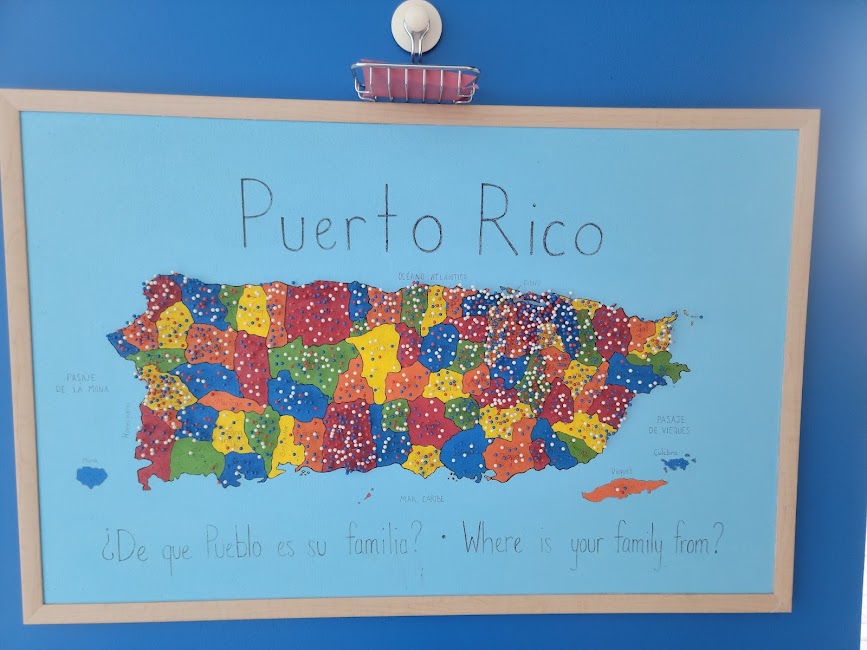 Puerto Rico
OCÉANO ATLÁNTICO
PASAJE
DE LA MONA
PASAJE
DE VIEQUES
Culebra
Mona
Vieques
MAR CARIBE
¿De que Pueblo es su familia? • Where is your family from?